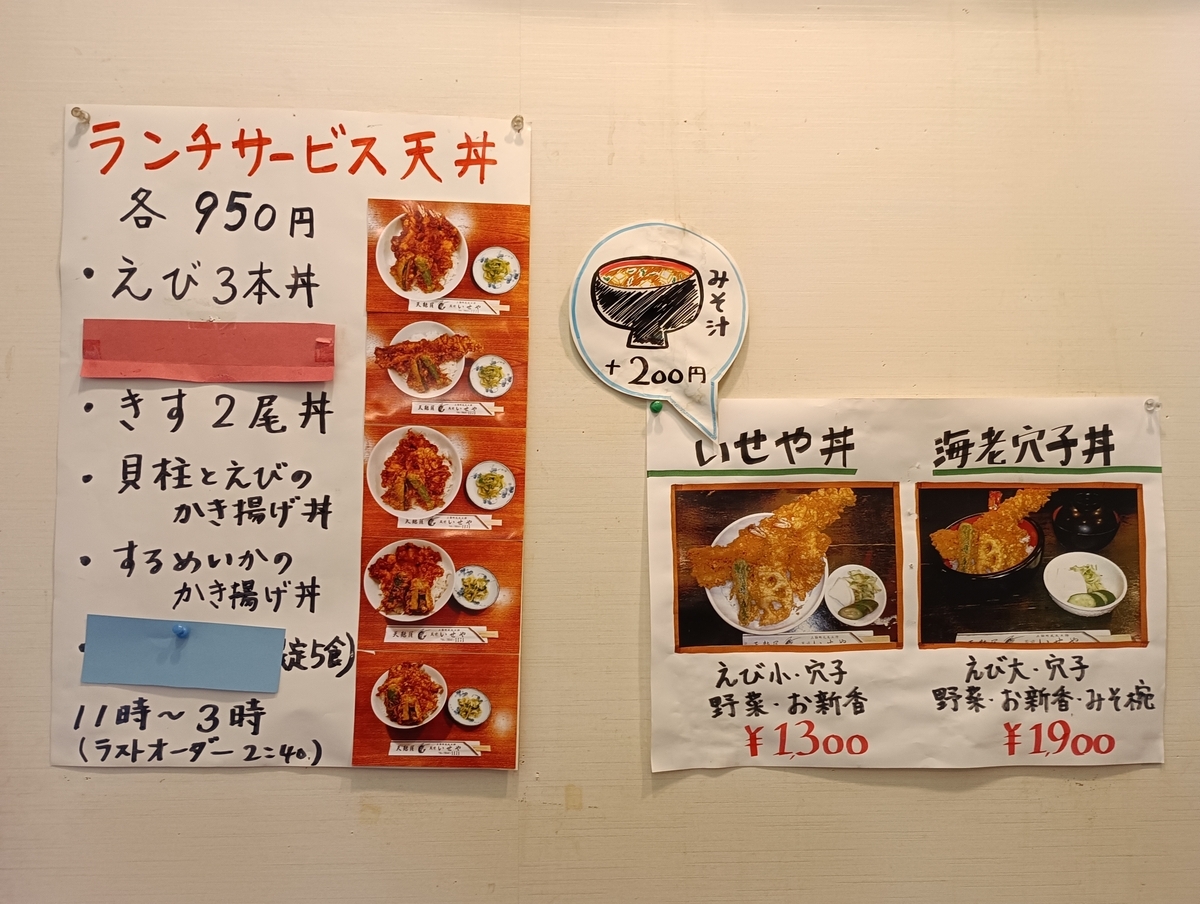 ランチサービス天丼
各 950円
・えび3本丼
・きす2尾丼
・貝柱とえびの
かき揚げ丼
・するめいかの
かき揚げ丼
・
定5食)
11時〜3時
(ラストオーダー 2:40.)
みそ汁
+200円
いせや丼
えび小・穴子
野菜・お新香
¥1,300
海老穴子丼
えび大・穴子
野菜・お新香・みそ椀
¥1,900